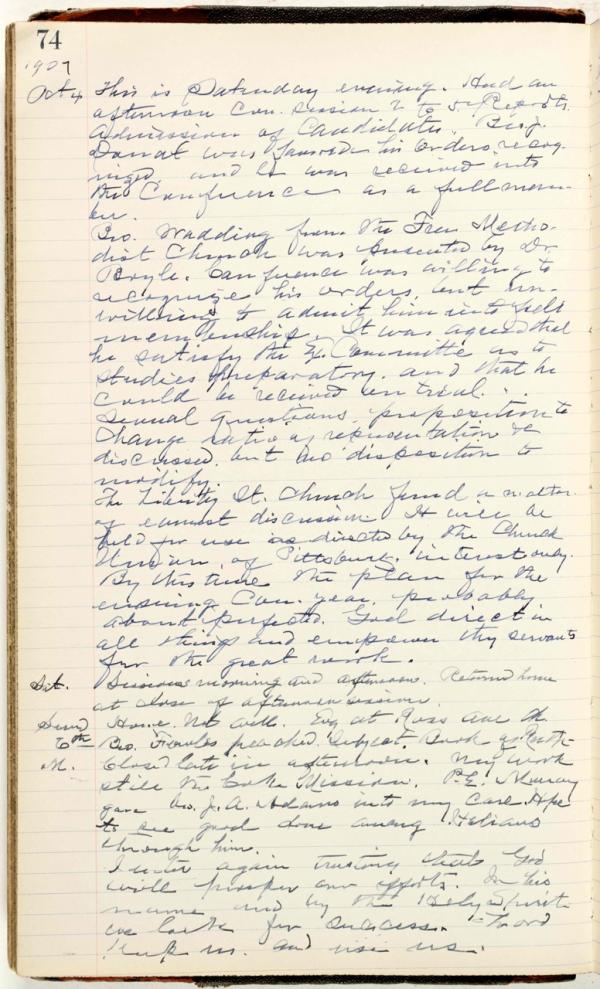 74
1907
Oct 4 This is Saturday evening. Had an
afternoon Con. session 2 to 5. Reports.
Admission of Candidates. Benj.
Donat was his orders recog-
nized and he was received into
the Conference as a full mem-
ber.
Bro. Wadding from the Free Metho-
dist Church was presented by Dr.
Boyle. Conference was willing to
recognize his orders, but un-
willing to admit him into full
membership. It was agreed that
he satisfy the Ex. Committe as to
studies preparatory, and that he
could be received on trial.
Several questions, proposition to
change ratio of representation &c
discussed, but no disposition to
modify.
The Liberty St. Church fund a matter
of earnest discussion. It will be
held for use as directed by the Church
Union of Pittsburg, interest only.
By this time the plan for the
ensuing Con. year, probably
about perfected. God direct in
all things and empower thy servants
for the great work.
Sat. Sessions morning and afternoon. Returned home
at close of afternoon session.
Home. Not well. Evg at Ross Ave Ch.
6th Bro. Fowles preached. Subject, Book of Ruth
M. Closed late in afternoon. My work
still the Coke Mission. P.E. Murray
gave Bro. J. A. Adams into my care. Hope
to see good done among Italians
through him.
I enter again trusting that God
will prosper our efforts. In his
name and by the Holy Spirit
we look for success. Lord
help us. and use us.